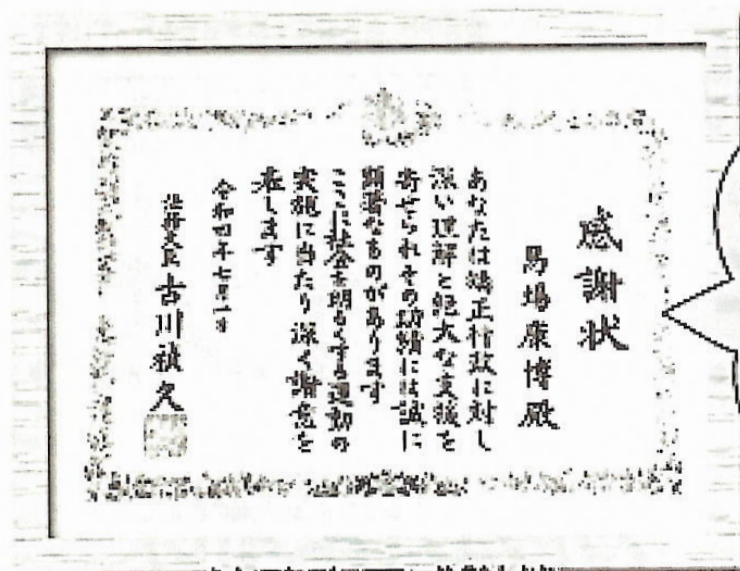 感謝状
馬場康博殿
あなたは矯正行政に対し
深い理解と絶大な支援を
寄せられその功績には誠に
顕著なものがあります
ここに社会を明るくする運動の
実施に当たり深く謝意を
表します
令和四年七月一日
法務大臣 古川禎久